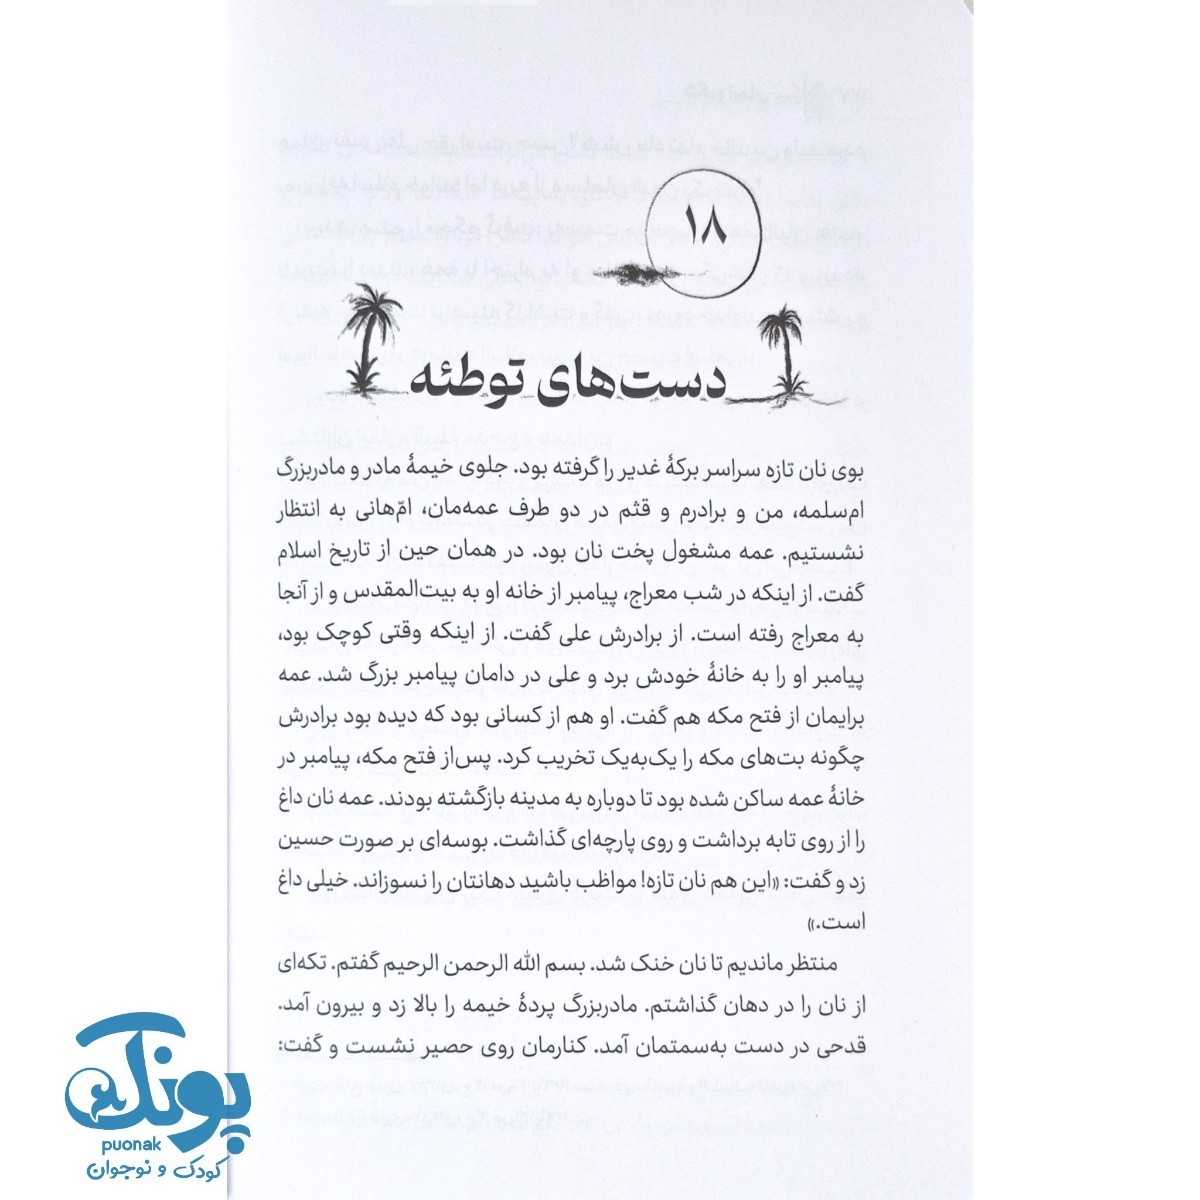 ۱۸
دست‌های توطئه
بوی نان تازه سراسر برکهٔ غدیر را گرفته بود. جلوی خیمهٔ مادر و مادربزرگ
ام‌سلمه، من و برادرم و قثم در دو طرف عمه‌مان، امّ‌هانی به انتظار
نشستیم. عمه مشغول پخت نان بود. در همان حین از تاریخ اسلام
گفت. از اینکه در شب معراج، پیامبر از خانه او به بیت‌المقدس و از آنجا
به معراج رفته است. از برادرش علی گفت. از اینکه وقتی کوچک بود،
پیامبر او را به خانهٔ خودش برد و علی در دامان پیامبر بزرگ شد. عمه
برایمان از فتح مکه هم گفت. او هم از کسانی بود که دیده بود برادرش
چگونه بت‌های مکه را یک‌به‌یک تخریب کرد. پس‌از فتح مکه، پیامبر در
خانهٔ عمه ساکن شده بود تا دوباره به مدینه بازگشته بودند. عمه نان داغ
را از روی تابه برداشت و روی پارچه‌ای گذاشت. بوسه‌ای بر صورت حسین
زد و گفت: «این هم نان تازه! مواظب باشید دهانتان را نسوزاند. خیلی داغ
است.»
منتظر ماندیم تا نان خنک شد. بسم الله الرحمن الرحیم گفتم. تکه‌ای
از نان را در دهان گذاشتم. مادربزرگ پردهٔ خیمه را بالا زد و بیرون آمد.
قدحی در دست به‌سمتمان آمد. کنارمان روی حصیر نشست و گفت:
پونک
puonak
کودک و نوجوان